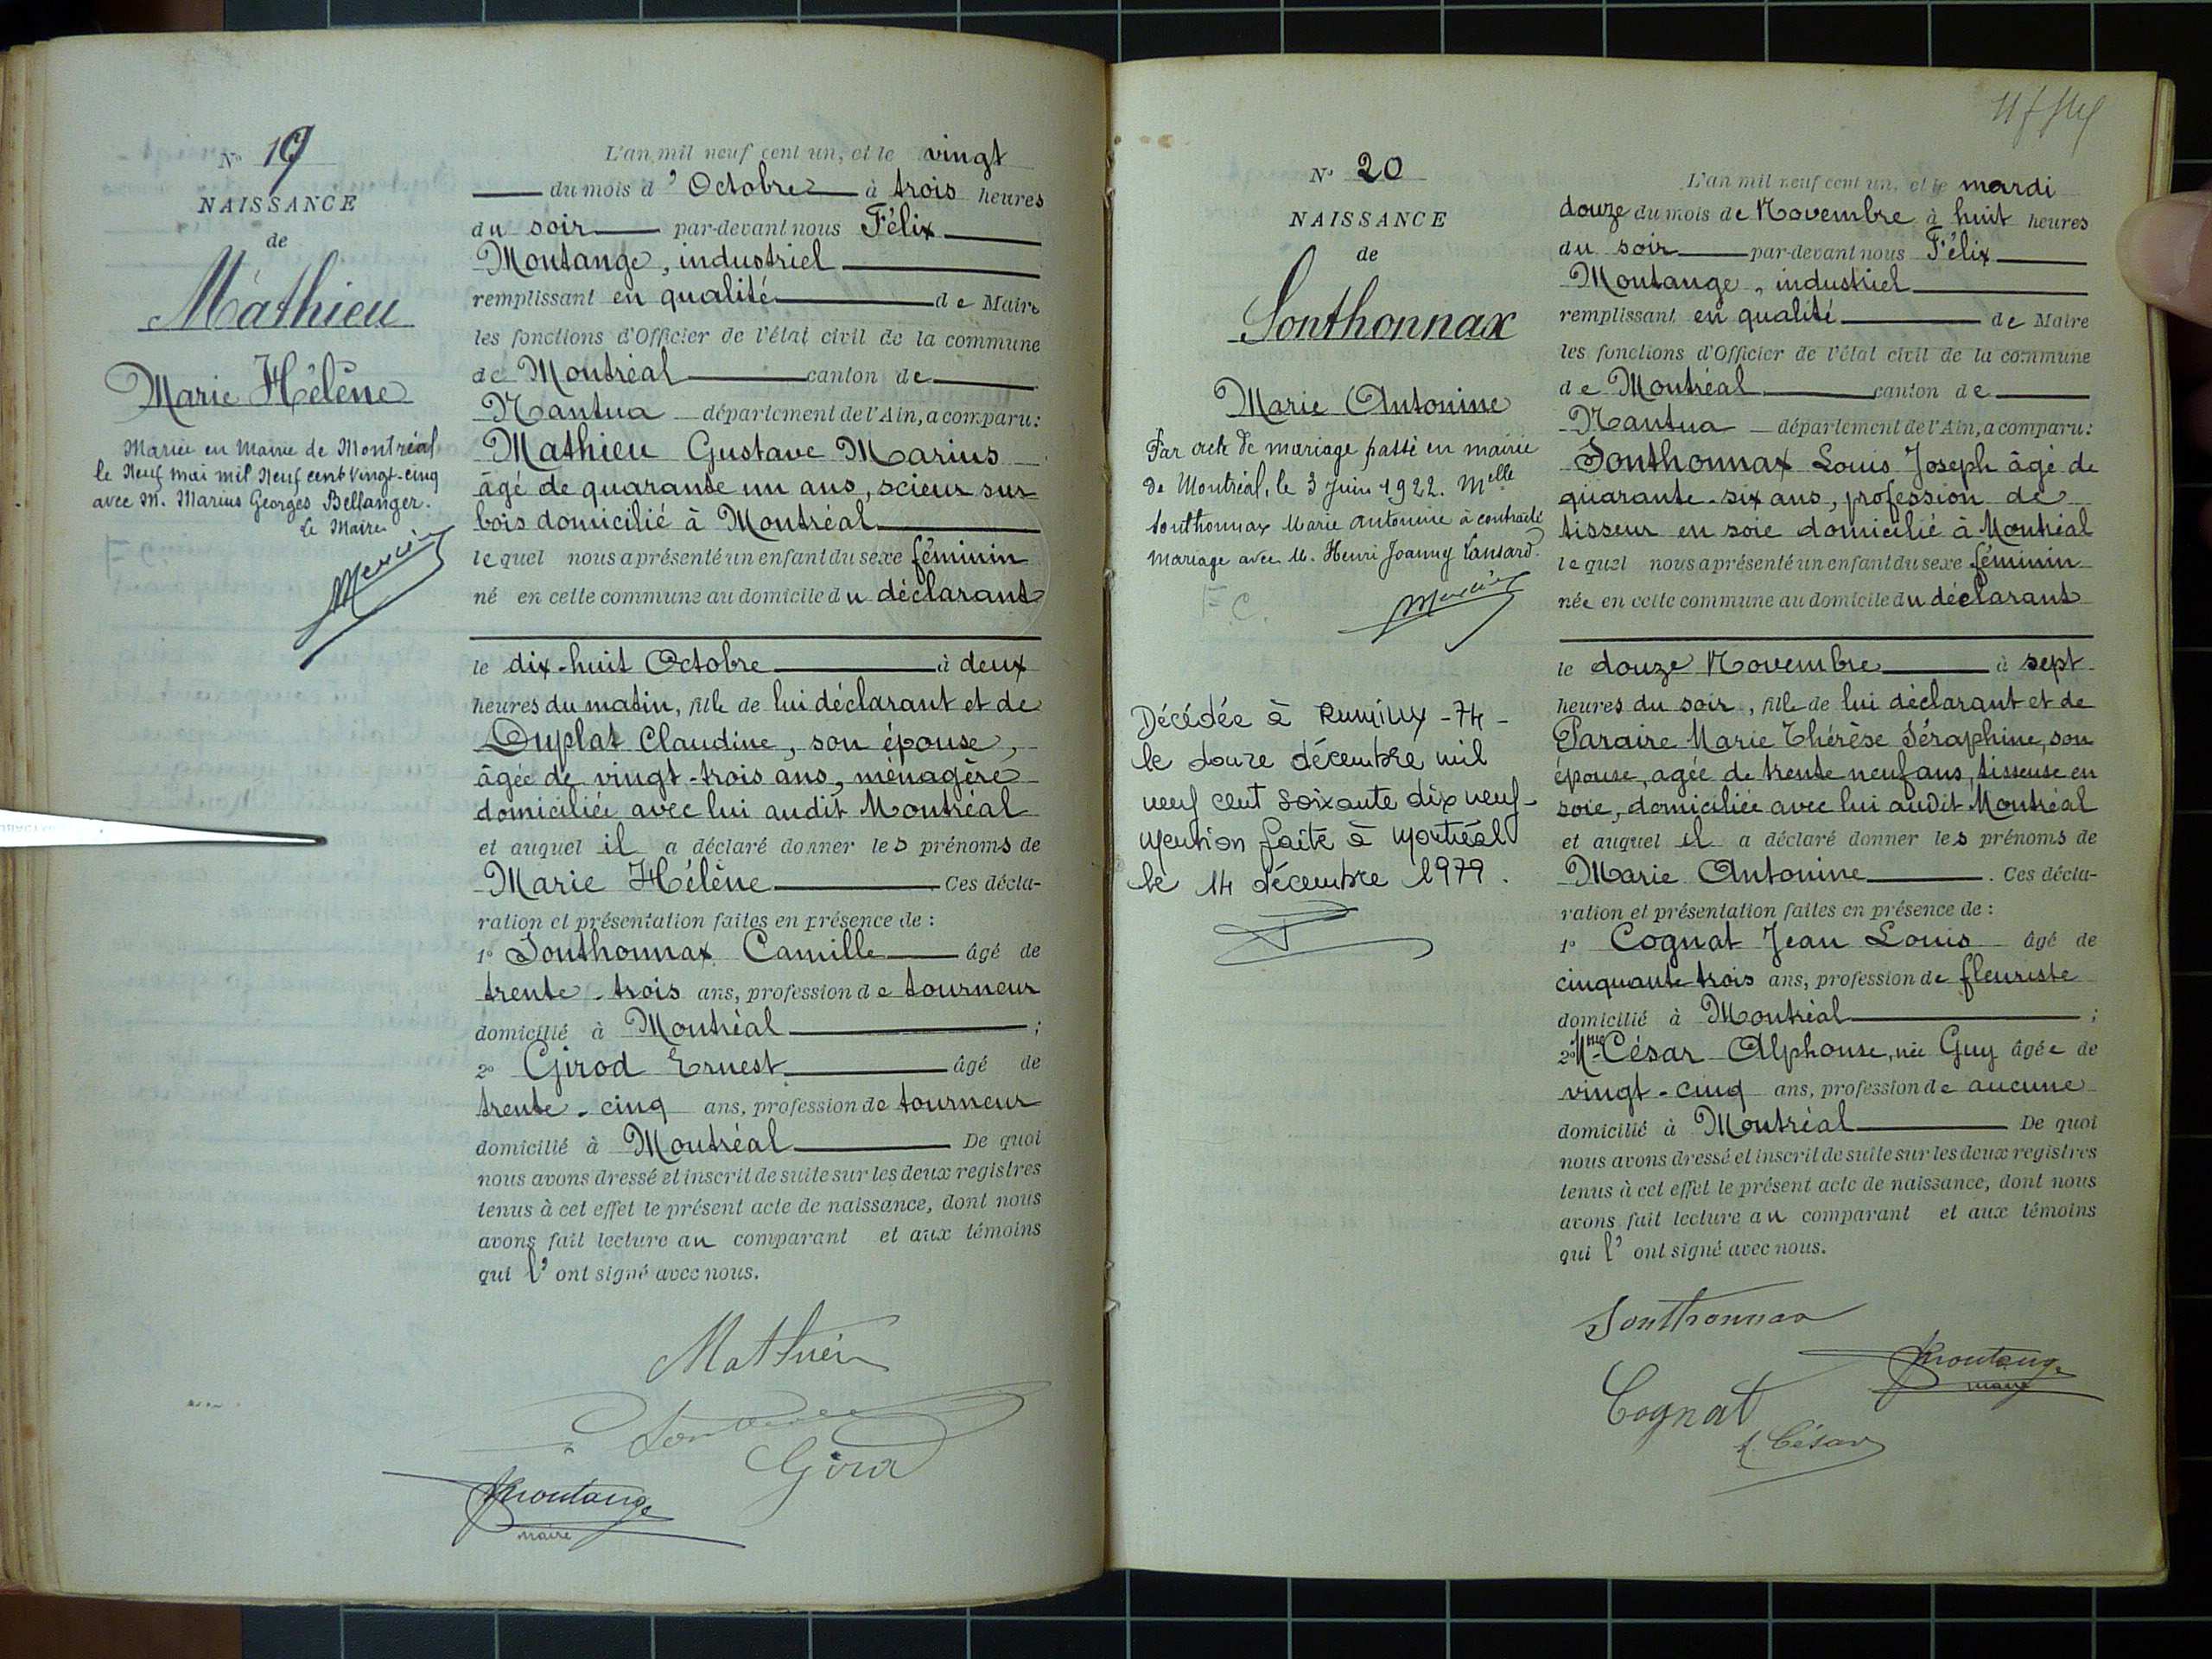 N° 19
NAISSANCE
de
Mathieu
Marie Hélène
Mariée en Mairie de Montréal
le Neuf mai mil Neuf cent vingt-cinq
avec M. Marius Georges Bellanger.
Le Maire
L'an mil neuf cent un, et le vingt
du mois d'Octobre à trois heures
du soir par-devant nous Félix
Montange, industriel
remplissant en qualité de Maire
les fonctions d'Officier de l'état civil de la commune
de Montréal canton de
Nantua département de l'Ain, a comparu:
Mathieu Gustave Marius
âgé de quarante un ans, scieur sur
bois domicilié à Montréal
lequel nous a présenté un enfant du sexe féminin
né en cette commune au domicile du déclarant
le dix-huit Octobre à deux
heures du matin, fille de lui déclarant et de
Duplat Claudine, son épouse,
âgée de vingt-trois ans, ménagère
domiciliée avec lui audit Montréal
et auquel il a déclaré donner les prénoms de
Marie Hélène Ces décla-
ration et présentation faites en présence de :
1° Sonthonnax Camille âgé de
trente-trois ans, profession de tourneur
domicilié à Montréal ;
2° Girod Ernest âgé de
trente-cinq ans, profession de tourneur
domicilié à Montréal De quoi
nous avons dressé et inscrit de suite sur les deux registres
tenus à cet effet le présent acte de naissance, dont nous
avons fait lecture au comparant et aux témoins
qui l'ont signé avec nous.
Mathieu
Girod
Montange
maire
N° 20
NAISSANCE
de
Sonthonnax
Marie Antonine
Par acte de mariage passé en mairie
de Montréal, le 3 Juin 1922. Melle
Sonthonnax Marie Antonine à contracté
mariage avec M. Henri Joanny Lansard.
F.C.
Décédée à Rumilly -74-
le douze décembre mil
neuf cent soixante dix neuf-
Mention faite à Montréal
le 14 décembre 1979.
L'an mil neuf cent un, et le mardi
douze du mois de Novembre à huit heures
du soir par-devant nous Félix
Montange, industriel
remplissant en qualité de Maire
les fonctions d'Officier de l'état civil de la commune
de Montréal canton de
Nantua département de l'Ain, a comparu:
Sonthonnax Louis Joseph âgé de
quarante-six ans, profession de
tisseur en soie domicilié à Montréal
lequel nous a présenté un enfant du sexe féminin
née en cette commune au domicile du déclarant
le douze Novembre à sept
heures du soir, fille de lui déclarant et de
Paraire Marie Thérèse Séraphine, son
épouse, agée de trente neuf ans, tisseuse en
soie, domiciliée avec lui audit Montréal
et auquel il a déclaré donner les prénoms de
Marie Antonine. Ces décla-
ration et présentation faites en présence de :
1° Cognat Jean Louis âgé de
cinquante trois ans, profession de fleuriste
domicilié à Montréal ;
2° Mme César Alphonse, née Guy âgée de
vingt-cinq ans, profession de aucune
domicilié à Montréal De quoi
nous avons dressé et inscrit de suite sur les deux registres
tenus à cet effet le présent acte de naissance, dont nous
avons fait lecture au comparant et aux témoins
qui l'ont signé avec nous.
Sonthonnax
Montange
maire
Cognat
César